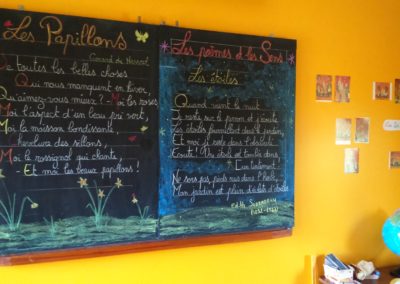 Les Papillons
Gérard de Nerval
De toutes les belles choses
Qui nous manquent en hiver,
Qu'aimez-vous mieux ? - Moi les roses
Moi l'aspect d'un beau pré vert,
Moi la moisson blondissante,
Chevelure des sillons,
Moi le rossignol qui chante,
- Et moi les beaux papillons !
Les poèmes et les Sens
Les étoiles
Quand vient la nuit
Je reste sur le perron et j'écoute
Les étoiles fourmillent dans le jardin,
Et moi je reste dans l'obscurité
Écoute ! Une étoile est tombée dans
Ne sors pas pieds nus dans l'herbe,
Mon jardin est plein d'éclats d'étoiles
Edith Södergran